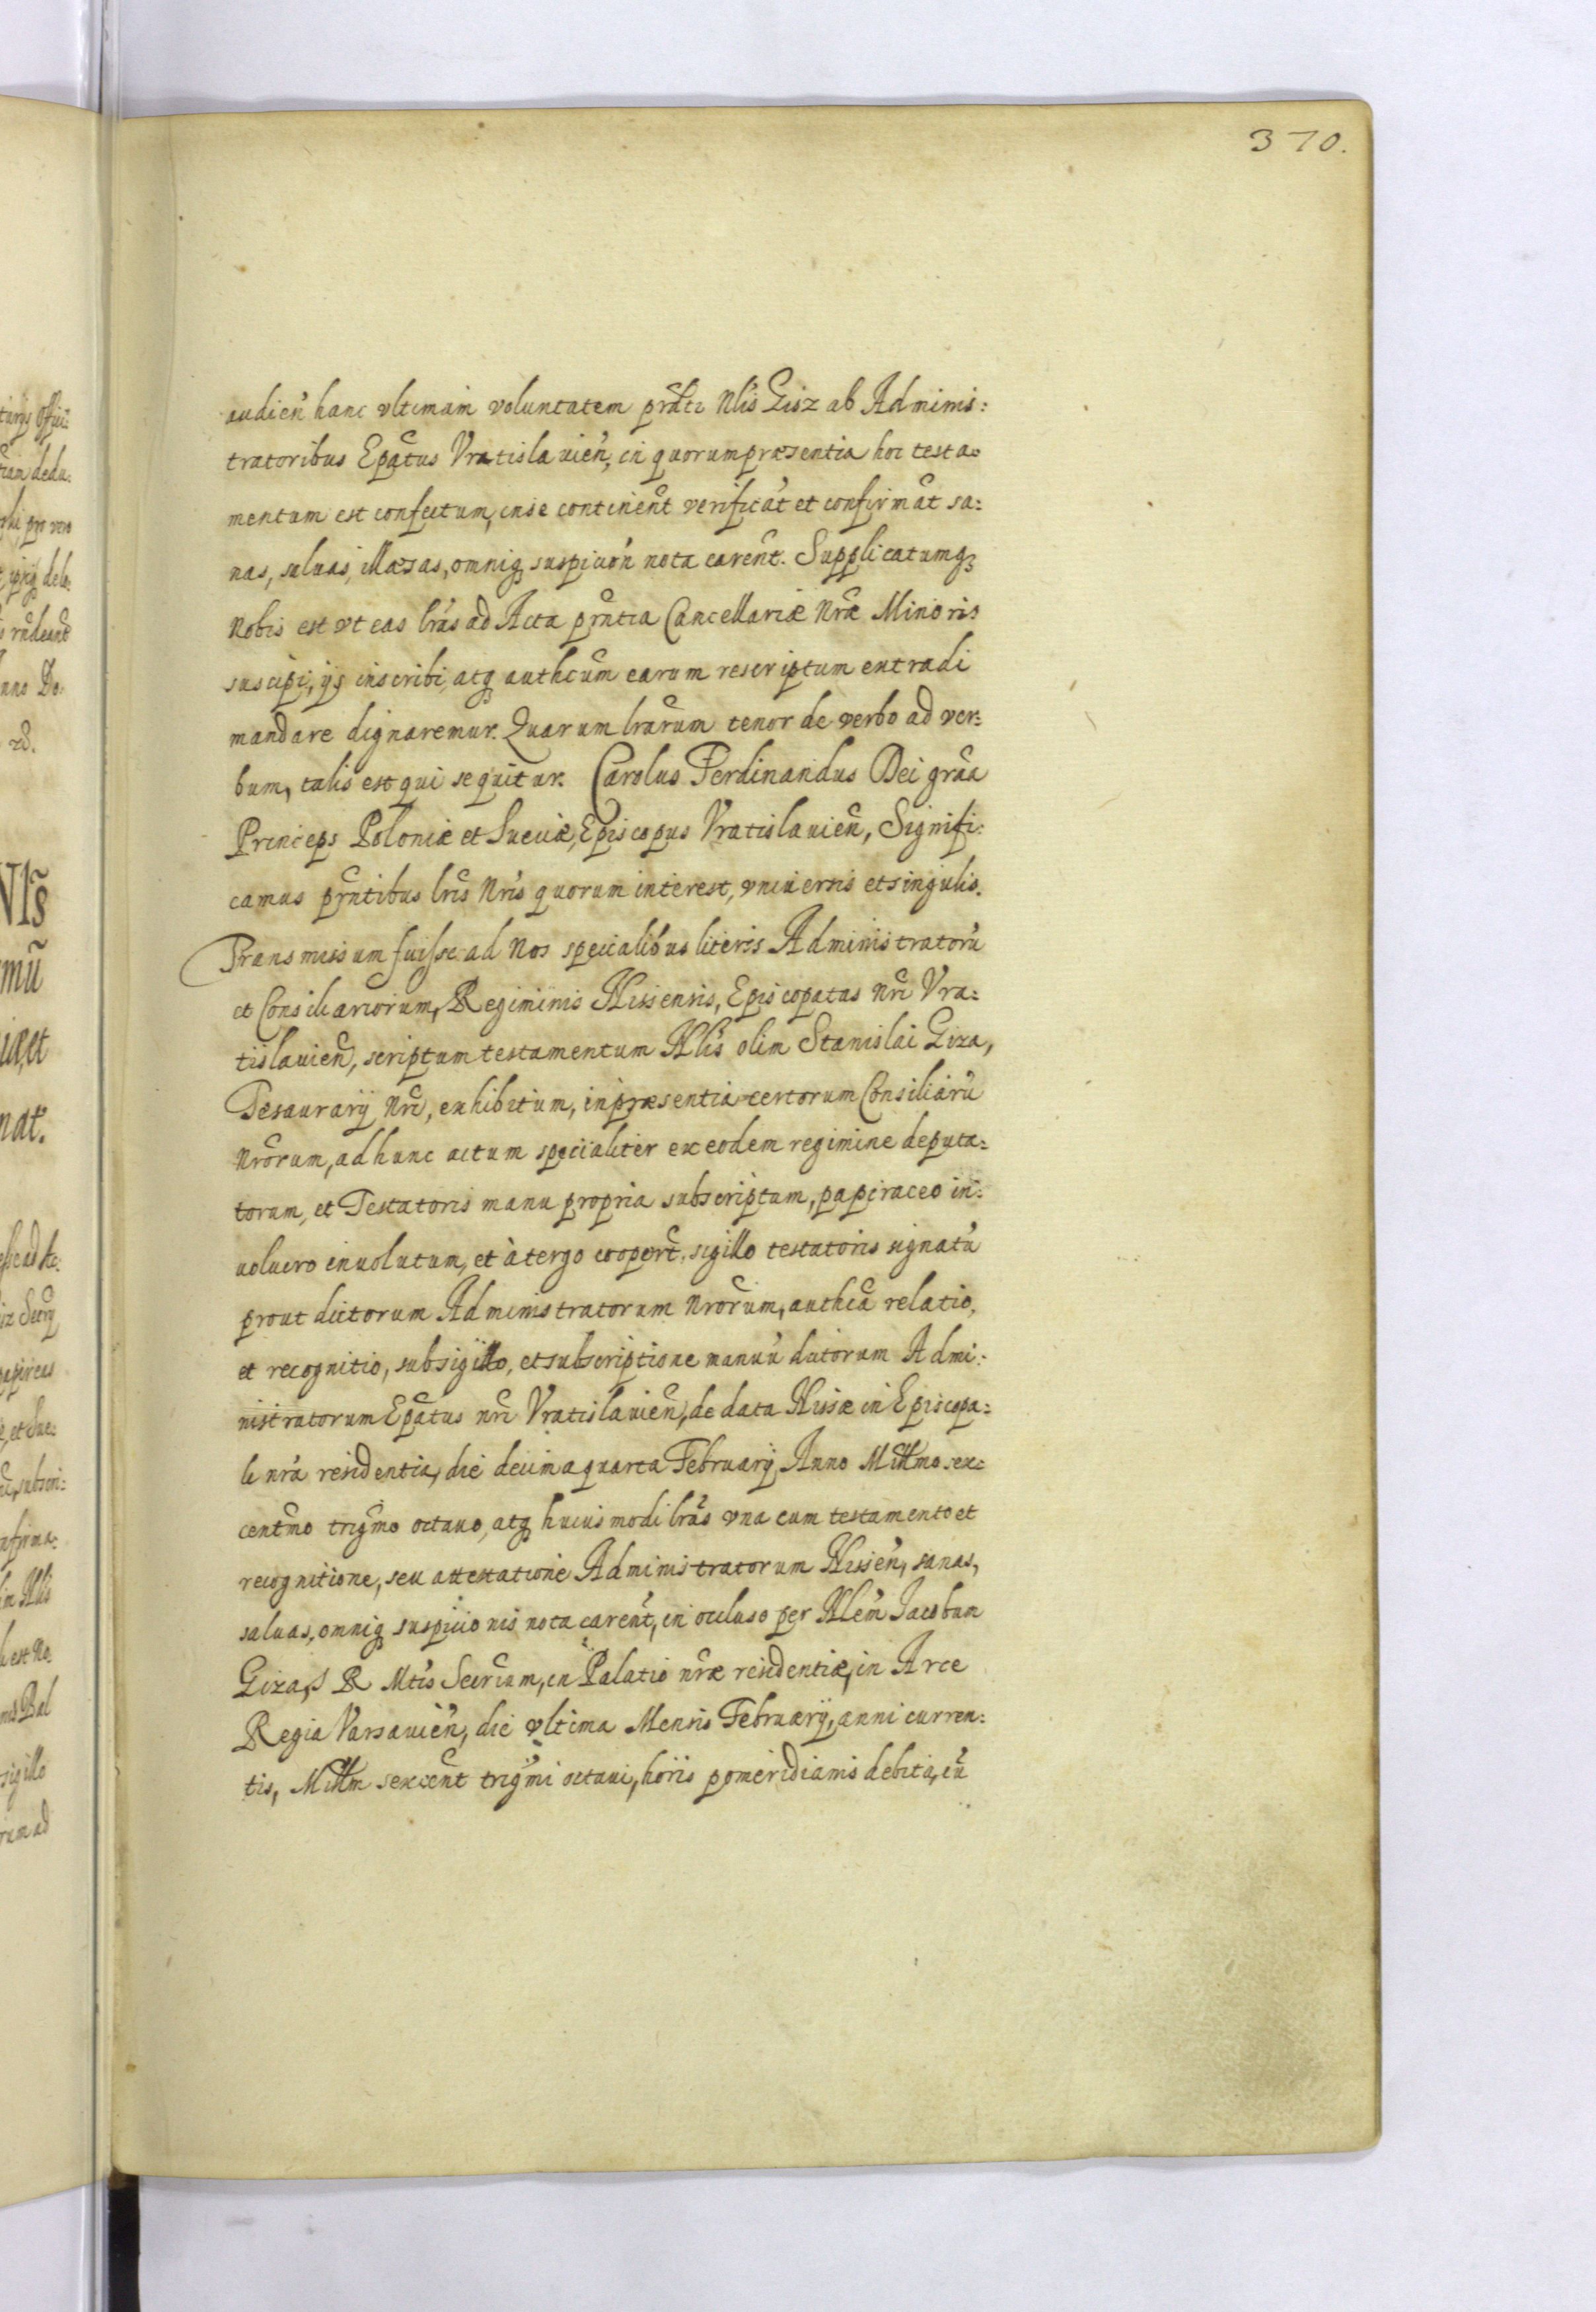 370.
audien̄ hanc vltimam voluntatem prāti Nlis Gisz ab Adminis:
tratoribus Ep̄atus Vratislauien̄, in quorum præsentia hoc testa:
mentum est confectum, in se continen̄t verificat̄ et confirmat̄ sa:
nas, saluas, illæsas, omniq̨ suspicion̄ nota caren̄t. Supplicatumq̨
Nobis est vt eas lr̄as ad Acta pr̄ntia Cancellariæ Nr̄æ Minoris
suscipi, ijs inscribi, atq̨ authcūm earum rescriptum extradi
mandare dignaremur. Quarum lr̄arum tenor de verbo ad ver:
bum, talis est qui sequitur. Carolus Ferdinandus Dei gr̄aa
Princeps Poloniæ et Sueciæ, Episcopus Vratislauien̄, Signifi:
camus pr̄ntibus lr̄is Nr̄is quorum interest, vniuersis et singulis.
Transmissum fuisse ad Nos specialibus literis Administratorū
et Consiliariorum, Regiminis Nissensis, Episcopatus Nr̄i Vra:
tislauien̄, scriptum testamentum Nlis olim Stanislai Giza,
Tesaurarij Nr̄i, exhibitum, in præsentia certorum Consiliariū
Nr̄orum, ad hunc actum specialiter ex eodem regimine deputa:
torum, et Testatoris manu propria subscriptum, papiraceo in:
uolucro inuolutum, et à tergo cooper̄t, sigillo testatoris signatū
prout dictorum Administratorum Nr̄orum, authcā relatio,
et recognitio, sub sigillo, et subscriptione manuū dictorum Admi:
nistratorum Ep̄atus nr̄i Vratislauien̄, de data Nissæ in Episcopa:
li nr̄a residentia, die decima quarta Februarij Anno Millmo sex:
centmo trigmo octauo, atq̨ huiusmodi lr̄as vna cum testamento et
recognitione, seu attestatione Administratorum Nissen̄, sanas,
saluas, omniq̨ suspicionis nota caren̄t, in occluso per Nlem Jacobum
Giza, S R Mtis Secrium, in Palatio nr̄æ residentiæ, in Arce
Regia Varsauien̄, die vltima Mensis Februarij, anni curren:
tis, Millm sexcen̄t trigmi octaui, horis pomeridianis debita, cū